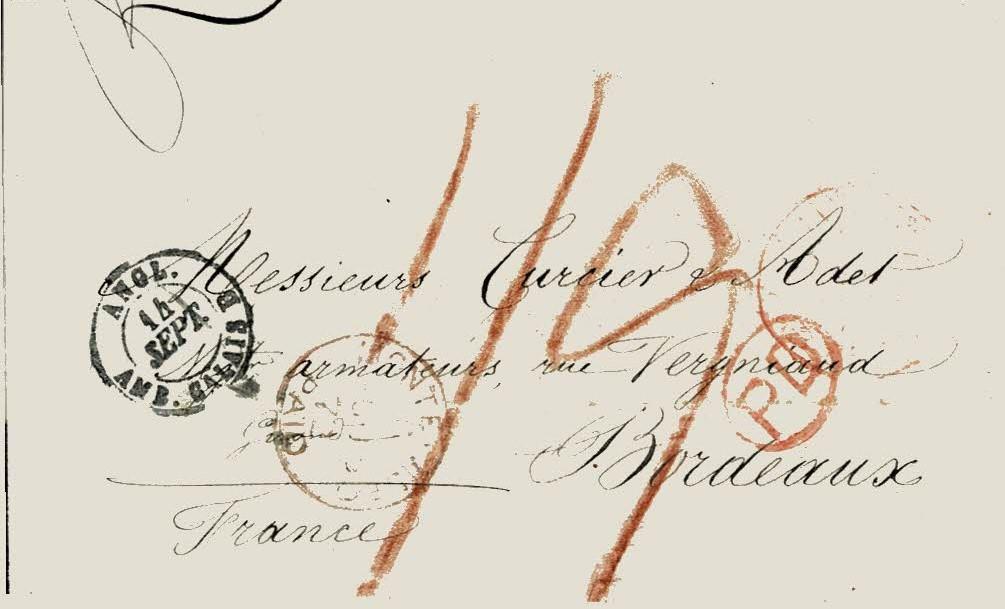 Messieurs Curcier & Adet
armateurs, rue Vergniaud
Bordeaux
France
ANGL.
14
SEPT.
AMB. CALAIS B
PAID
PD
1/3